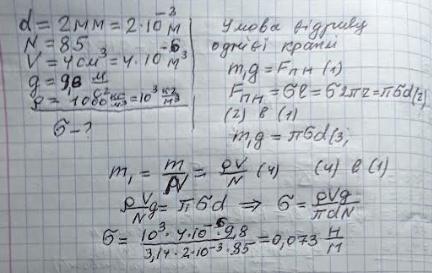 d = 2мм = 2·10⁻³ м
N = 85
V = 4см³ = 4·10⁻⁶ м³
g = 9,8 м/с²
ρ = 1000 кг/м³ = 10³ кг/м³
б - ?
Умова відриву
однієї краплі
m₁g = Fпн (1)
Fпн = бl = б2πr = πбd (2)
(2) в (1)
m₁g = πбd (3)
m₁ = m/N = ρV/N (4) (4) в (1)
ρV/N g = πбd ⇒ б = ρVg/πdN
б = 10³·4·10⁻⁶·9,8 / 3,14·2·10⁻³·85 = 0,073 Н/м